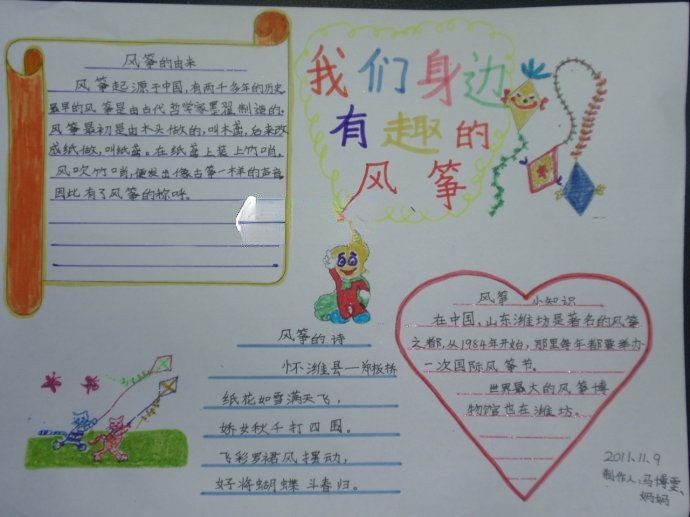 风筝的由来
风筝起源于中国,有两千多年的历史
最早的风筝是由古代哲学家墨翟制造的.
风筝最初是由木头做的,叫木鸢,后来改
成纸做,叫纸鸢。在纸鸢上装上竹哨,
风吹竹哨,便发出像古筝一样的声音
因此有了风筝的称呼。
我们身边
有趣的
风筝
风筝的诗
怀潍县—郑板桥
纸花如雪满天飞,
娇女秋千打四围。
飞彩罗裙风摆动,
好将蝴蝶斗春归。
风筝小知识
在中国,山东潍坊是著名的风筝
之都,从1984年开始,那里每年都要举办
一次国际风筝节。
世界最大的风筝博
物馆也在潍坊。
2011.11.9
制作人:马博雯、
妈妈